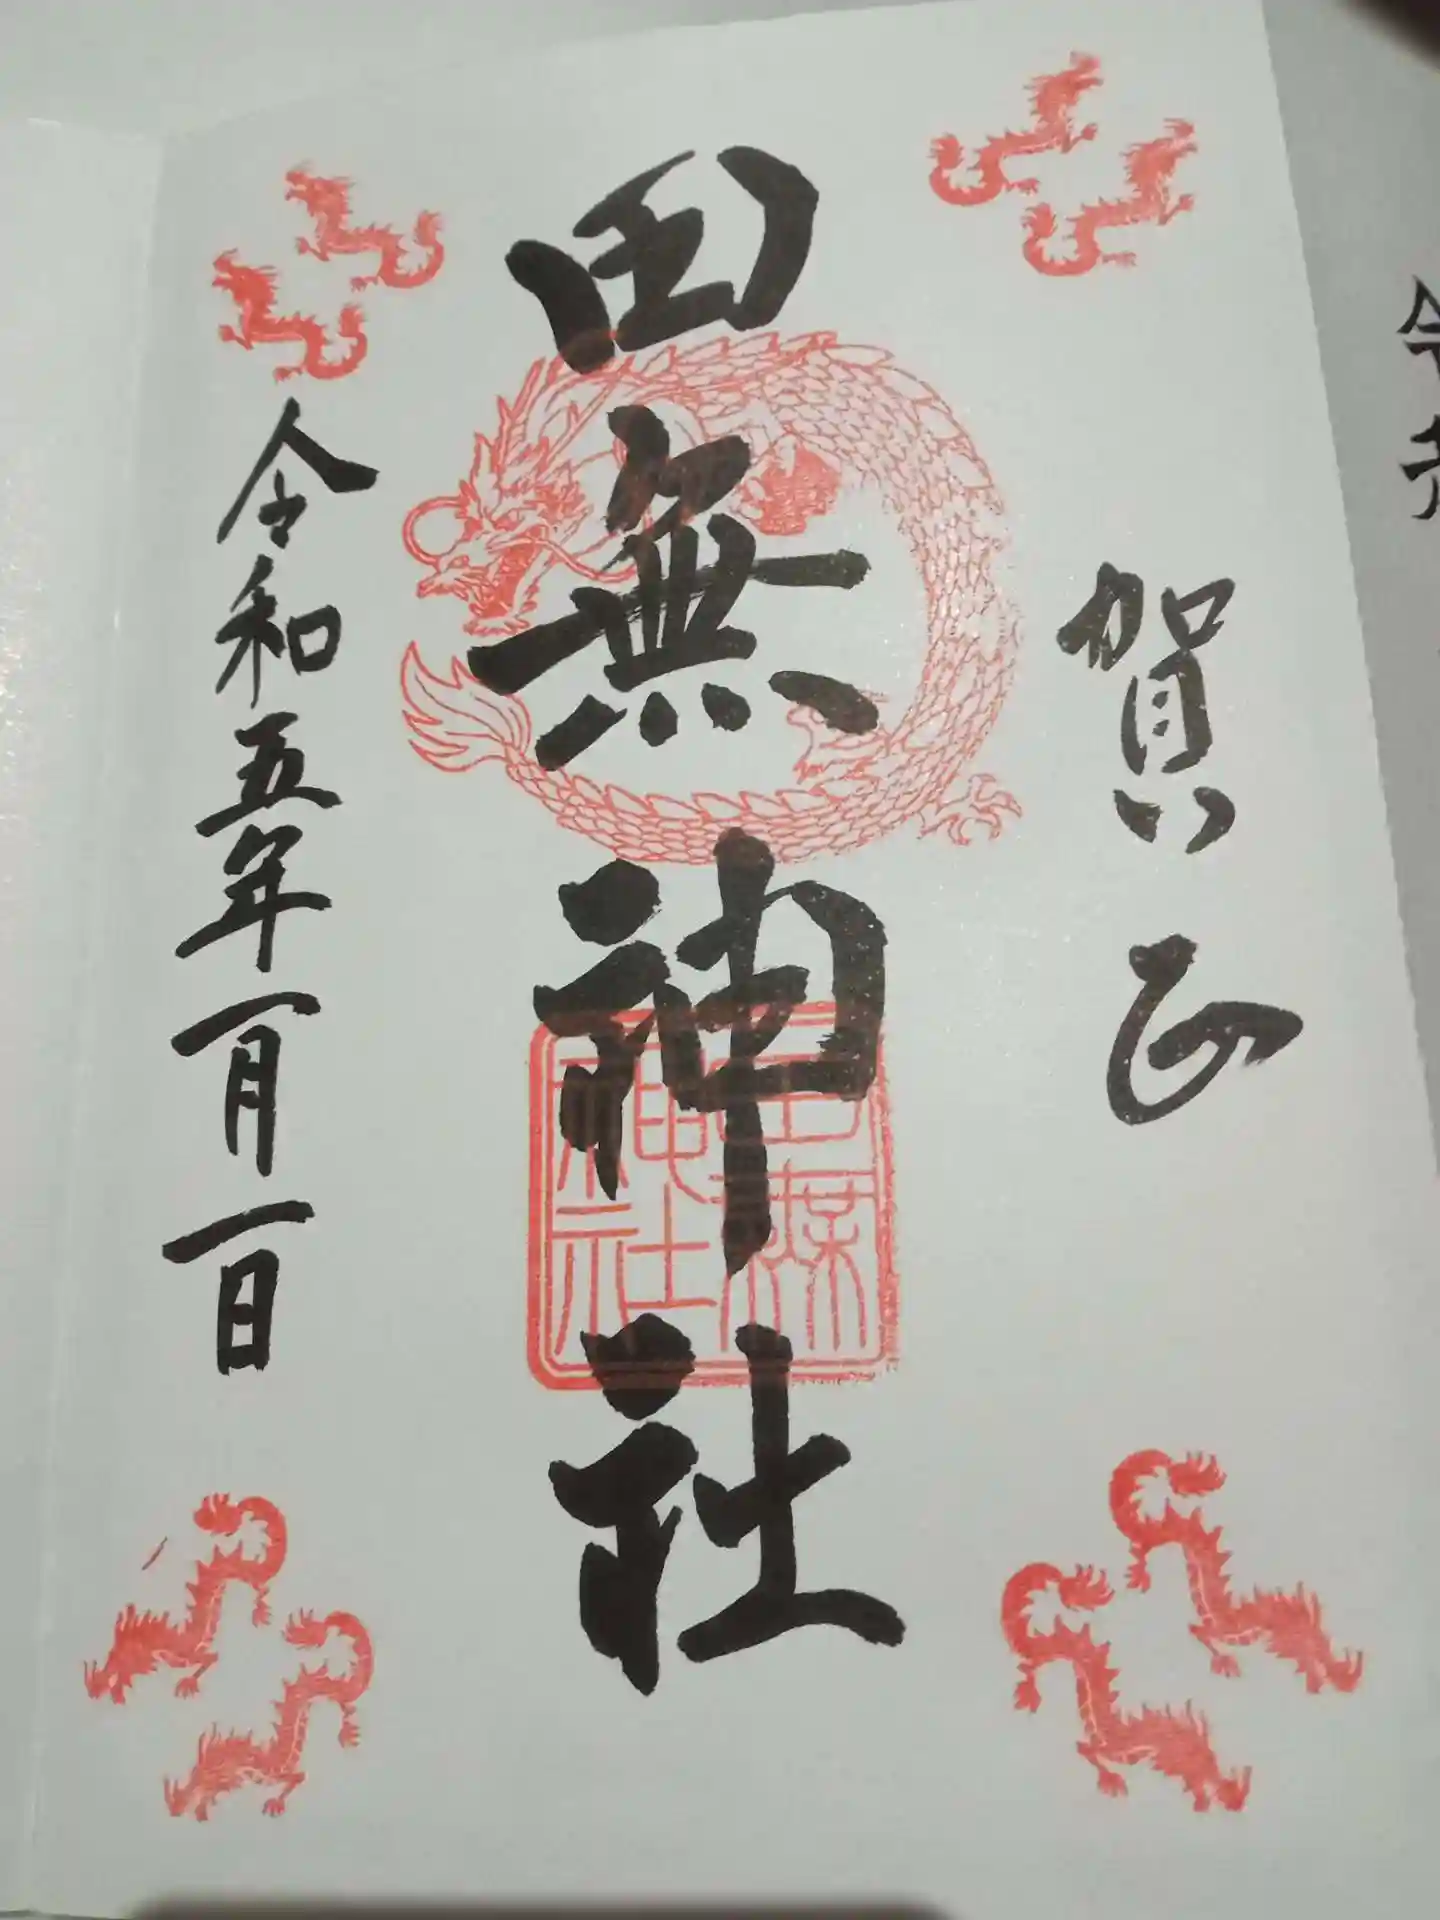 賀正
田無神社
田無神社
令和五年一月一日